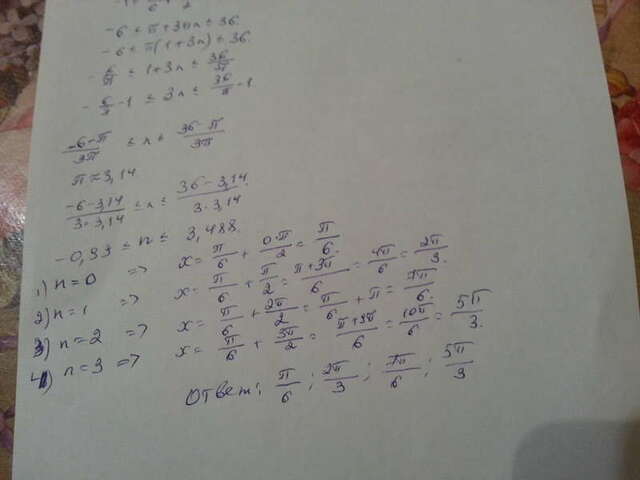 -6 ≤ π+3πn ≤ 36
-6 ≤ π(1+3n) ≤ 36.
-6/π ≤ 1+3n ≤ 36/π
-6/π -1 ≤ 3n ≤ 36/π -1
(-6-π)/3π ≤ n ≤ (36-π)/3π
π≈3,14
(-6-3,14)/(3·3,14) ≤ n ≤ (36-3,14)/(3·3,14)
-0,93 ≤ n ≤ 3,488.
1) n=0 => x = π/6 + 0·π/2 = π/6.
2) n=1 => x = π/6 + π/2 = (π+3π)/6 = 4π/6 = 2π/3.
3) n=2 => x = π/6 + 2π/2 = π/6 + π = 7π/6.
4) n=3 => x = π/6 + 3π/2 = (π+9π)/6 = 10π/6 = 5π/3.
Ответ: π/6; 2π/3; 7π/6; 5π/3